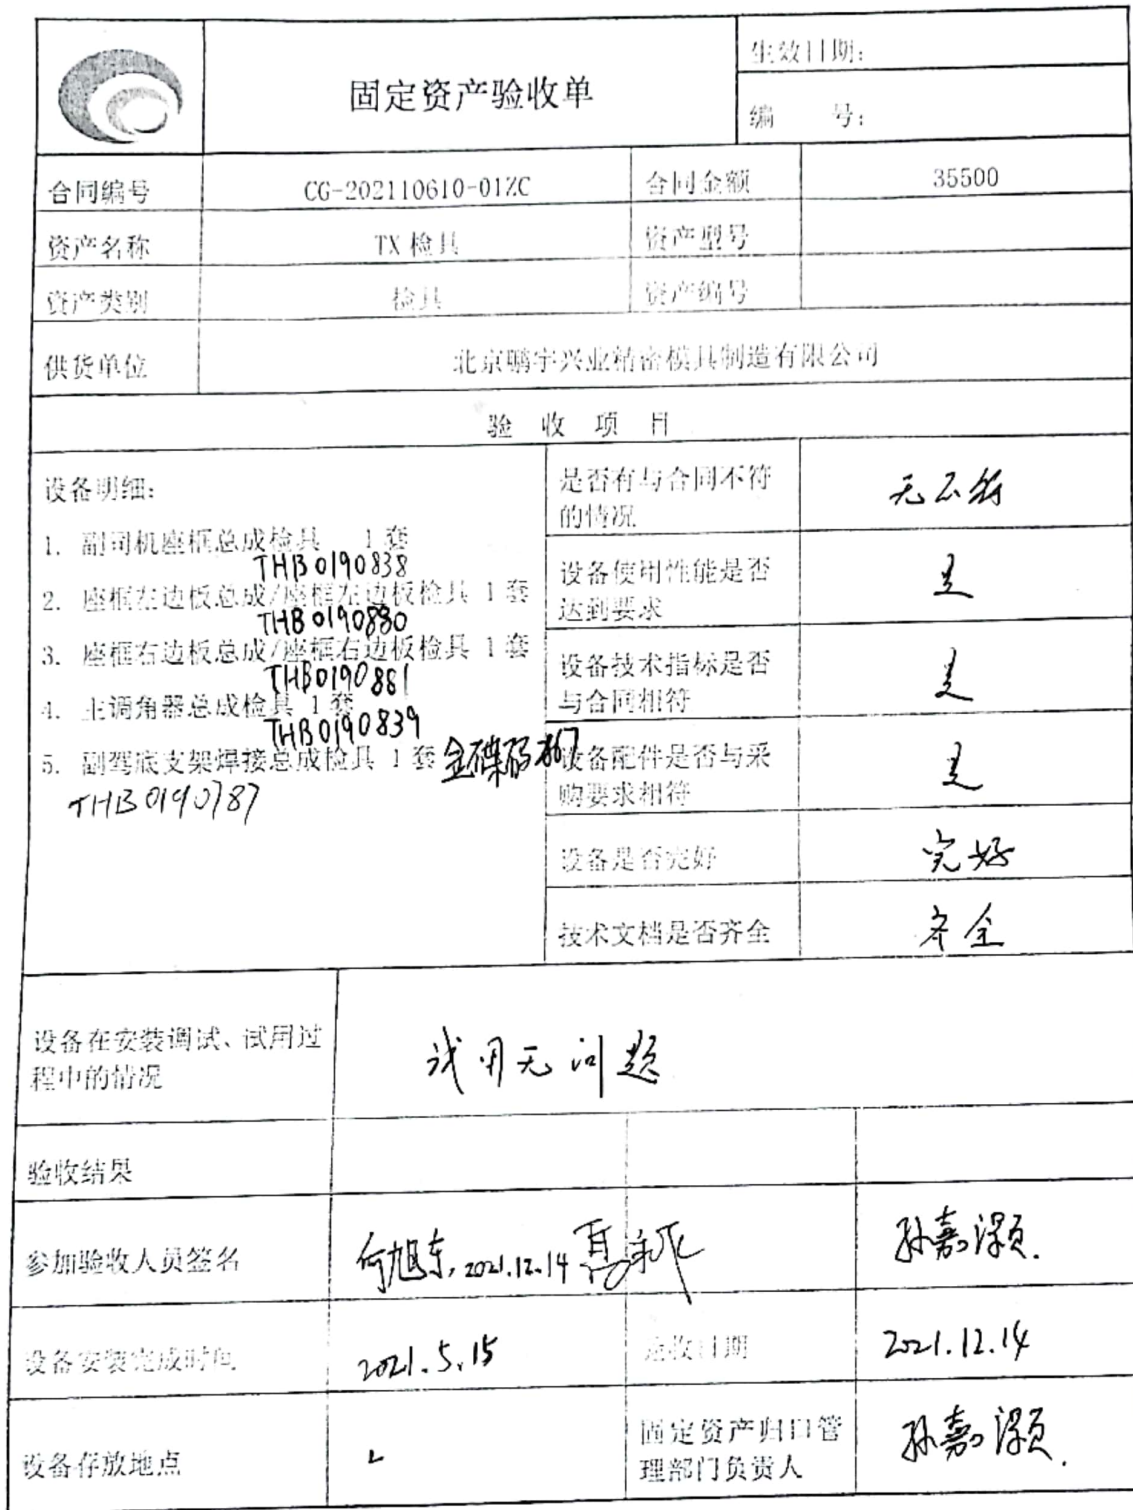 固定资产验收单
生效日期：
编 号：
合同编号 CG-202110610-01ZC 合同金额 35500
资产名称 TX 检具 资产型号
资产类别 检具 资产编号
供货单位 北京鹏宇兴业精密模具制造有限公司
验 收 项 目
设备明细：
1. 副司机座框总成检具 1 套
THB0190838
2. 座框左边板总成/座框左边板检具 1 套
THB0190880
3. 座框右边板总成/座框右边板检具 1 套
THB0190881
4. 主调角器总成检具 1 套
THB0190839
5. 副驾底支架焊接总成检具 1 套
THB0190787
是否有与合同不符
的情况
无不符
设备使用性能是否
达到要求
是
设备技术指标是否
与合同相符
是
设备配件是否与采
购要求相符
是
设备是否完好 完好
技术文档是否齐全 齐全
设备在安装调试、试用过
程中的情况
试用无问题
验收结果
参加验收人员签名 何旭东, 2021.12.14 孙嘉灏.
设备安装完成时间 2021.5.15 验收日期 2021.12.14
设备存放地点
固定资产归口管
理部门负责人
孙嘉灏.